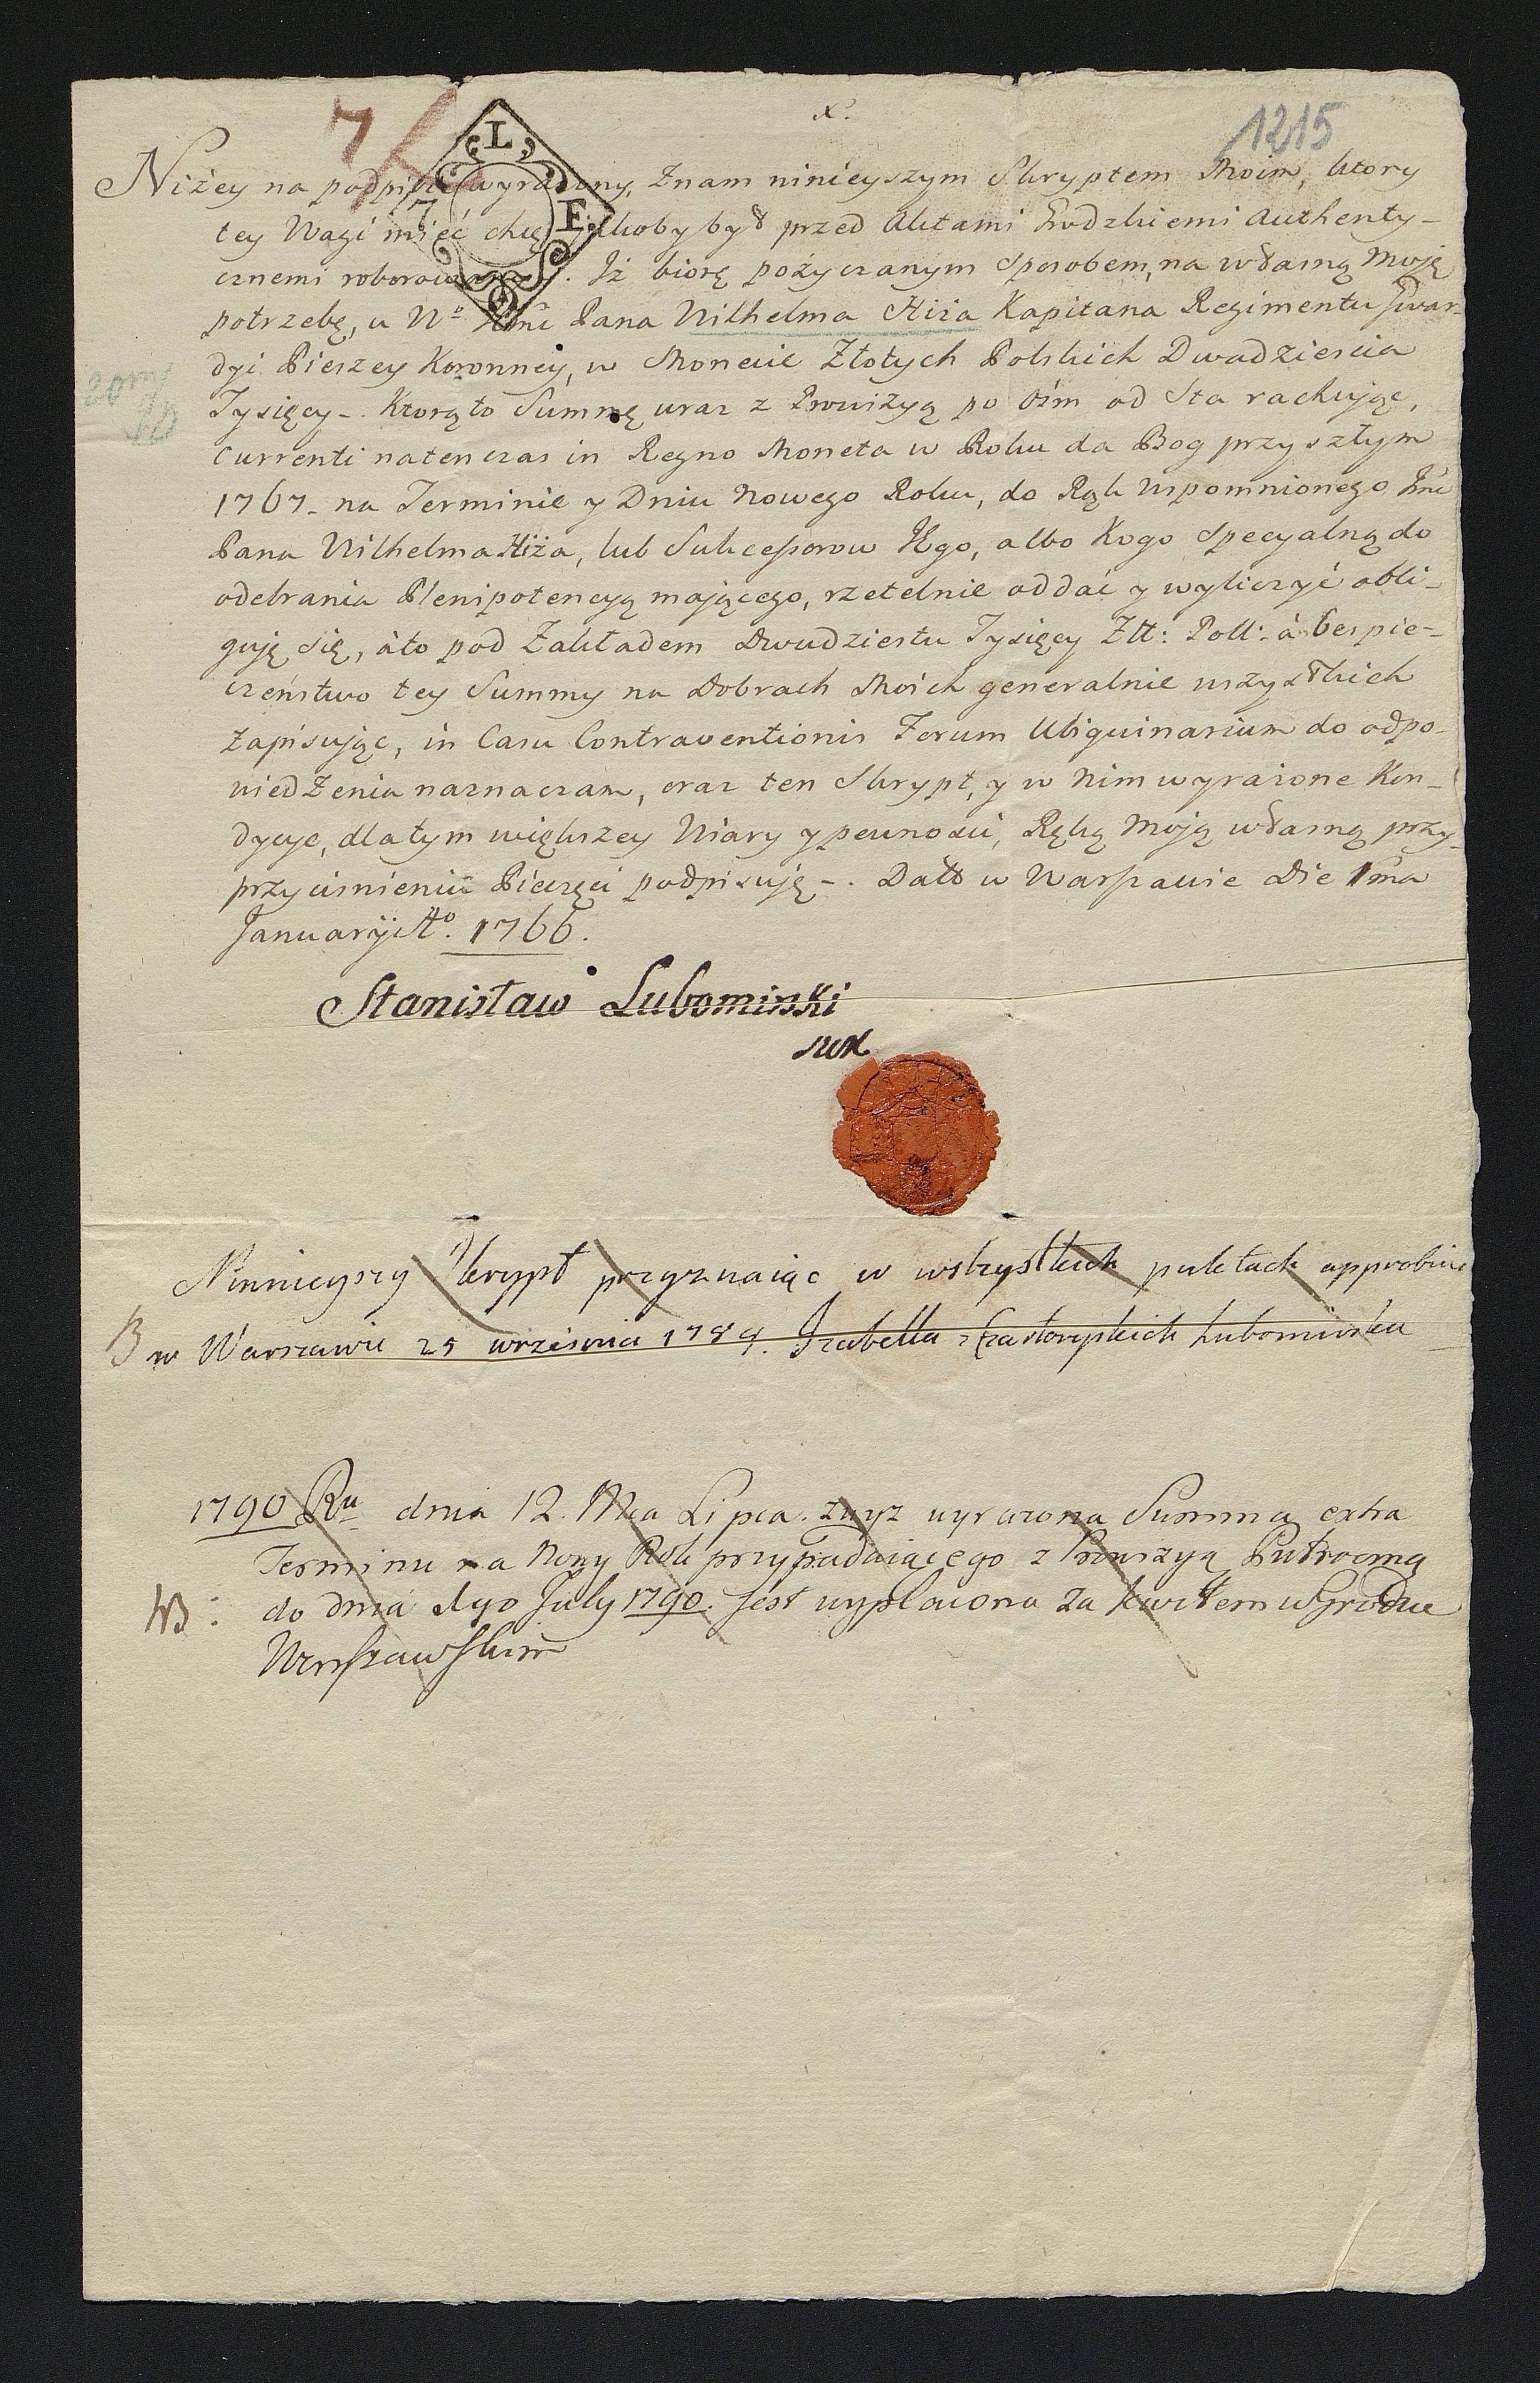 7
1215
Niżey na podpisie wyrażony, Znam ninieyszym Skryptem Moim, ktory
tey Wagi mieć chcę jakoby był przed Aktami Grodzkiemi Authenty-
cznemi roborowany. Iż biorę pożyczanym sposobem, na własną Moję
potrzebę, u Wo Jmć Pana Wilhelma Hiża Kapitana Regimentu Gwar-
dyi Pieszey Koronney, w Monecie Złotych Polskich Dwadziescia
Tysięcy-. Ktorą to Summę wraz z Prowizyą po Ośm od Sta rachując,
currenti natenczas in Regno Moneta w Roku da Bog przyszłym
1767- na Terminie y Dniu Nowego Roku, do Rąk Wspomnionego Jmć
Pana Wilhelma Hiża, lub Sukcessorow Jego, albo Kogo Specyalną do
odebrania Plenipotencyą mającego, rzetelnie oddać y wyliczyć obli-
guję się, áto pod Zakładem Dwudziestu Tysięcy Złł: Poll: á bespie-
czeństwo tey Summy na Dobrach Moich generalnie wszystkich
Zapisując, in Casu Contraventionis Forum Ubiquinarium do odpo-
wiedzenia naznaczam, oraz ten Skrypt, y w Nim wyrażone Kon-
dycye, dla tym większey Wiary y pewnosci, Ręką Moją własną przy
przycisnieniu Pieczęci podpisuję-. Datt w Warszawie Die 1ma
Januarij Ao. 1766.
Stanisław Lubomirski
L
E
Ninnieyszy Skrypt przyznaiąc w wstzystkich puktach approbuie
w Warszawie 25 września 1789. Izabella z Czartoryskich Lubomirska
1790 Ru dnia 12. Mca Lipca. zwyż wyrażona Summa extra
Terminu na Nowy Rok przypadaiącego z Prowizyą Putroczną
NB: do dnia 1go July 1790. jest wypłacona za kwitem w Grodzie
Warszawskim